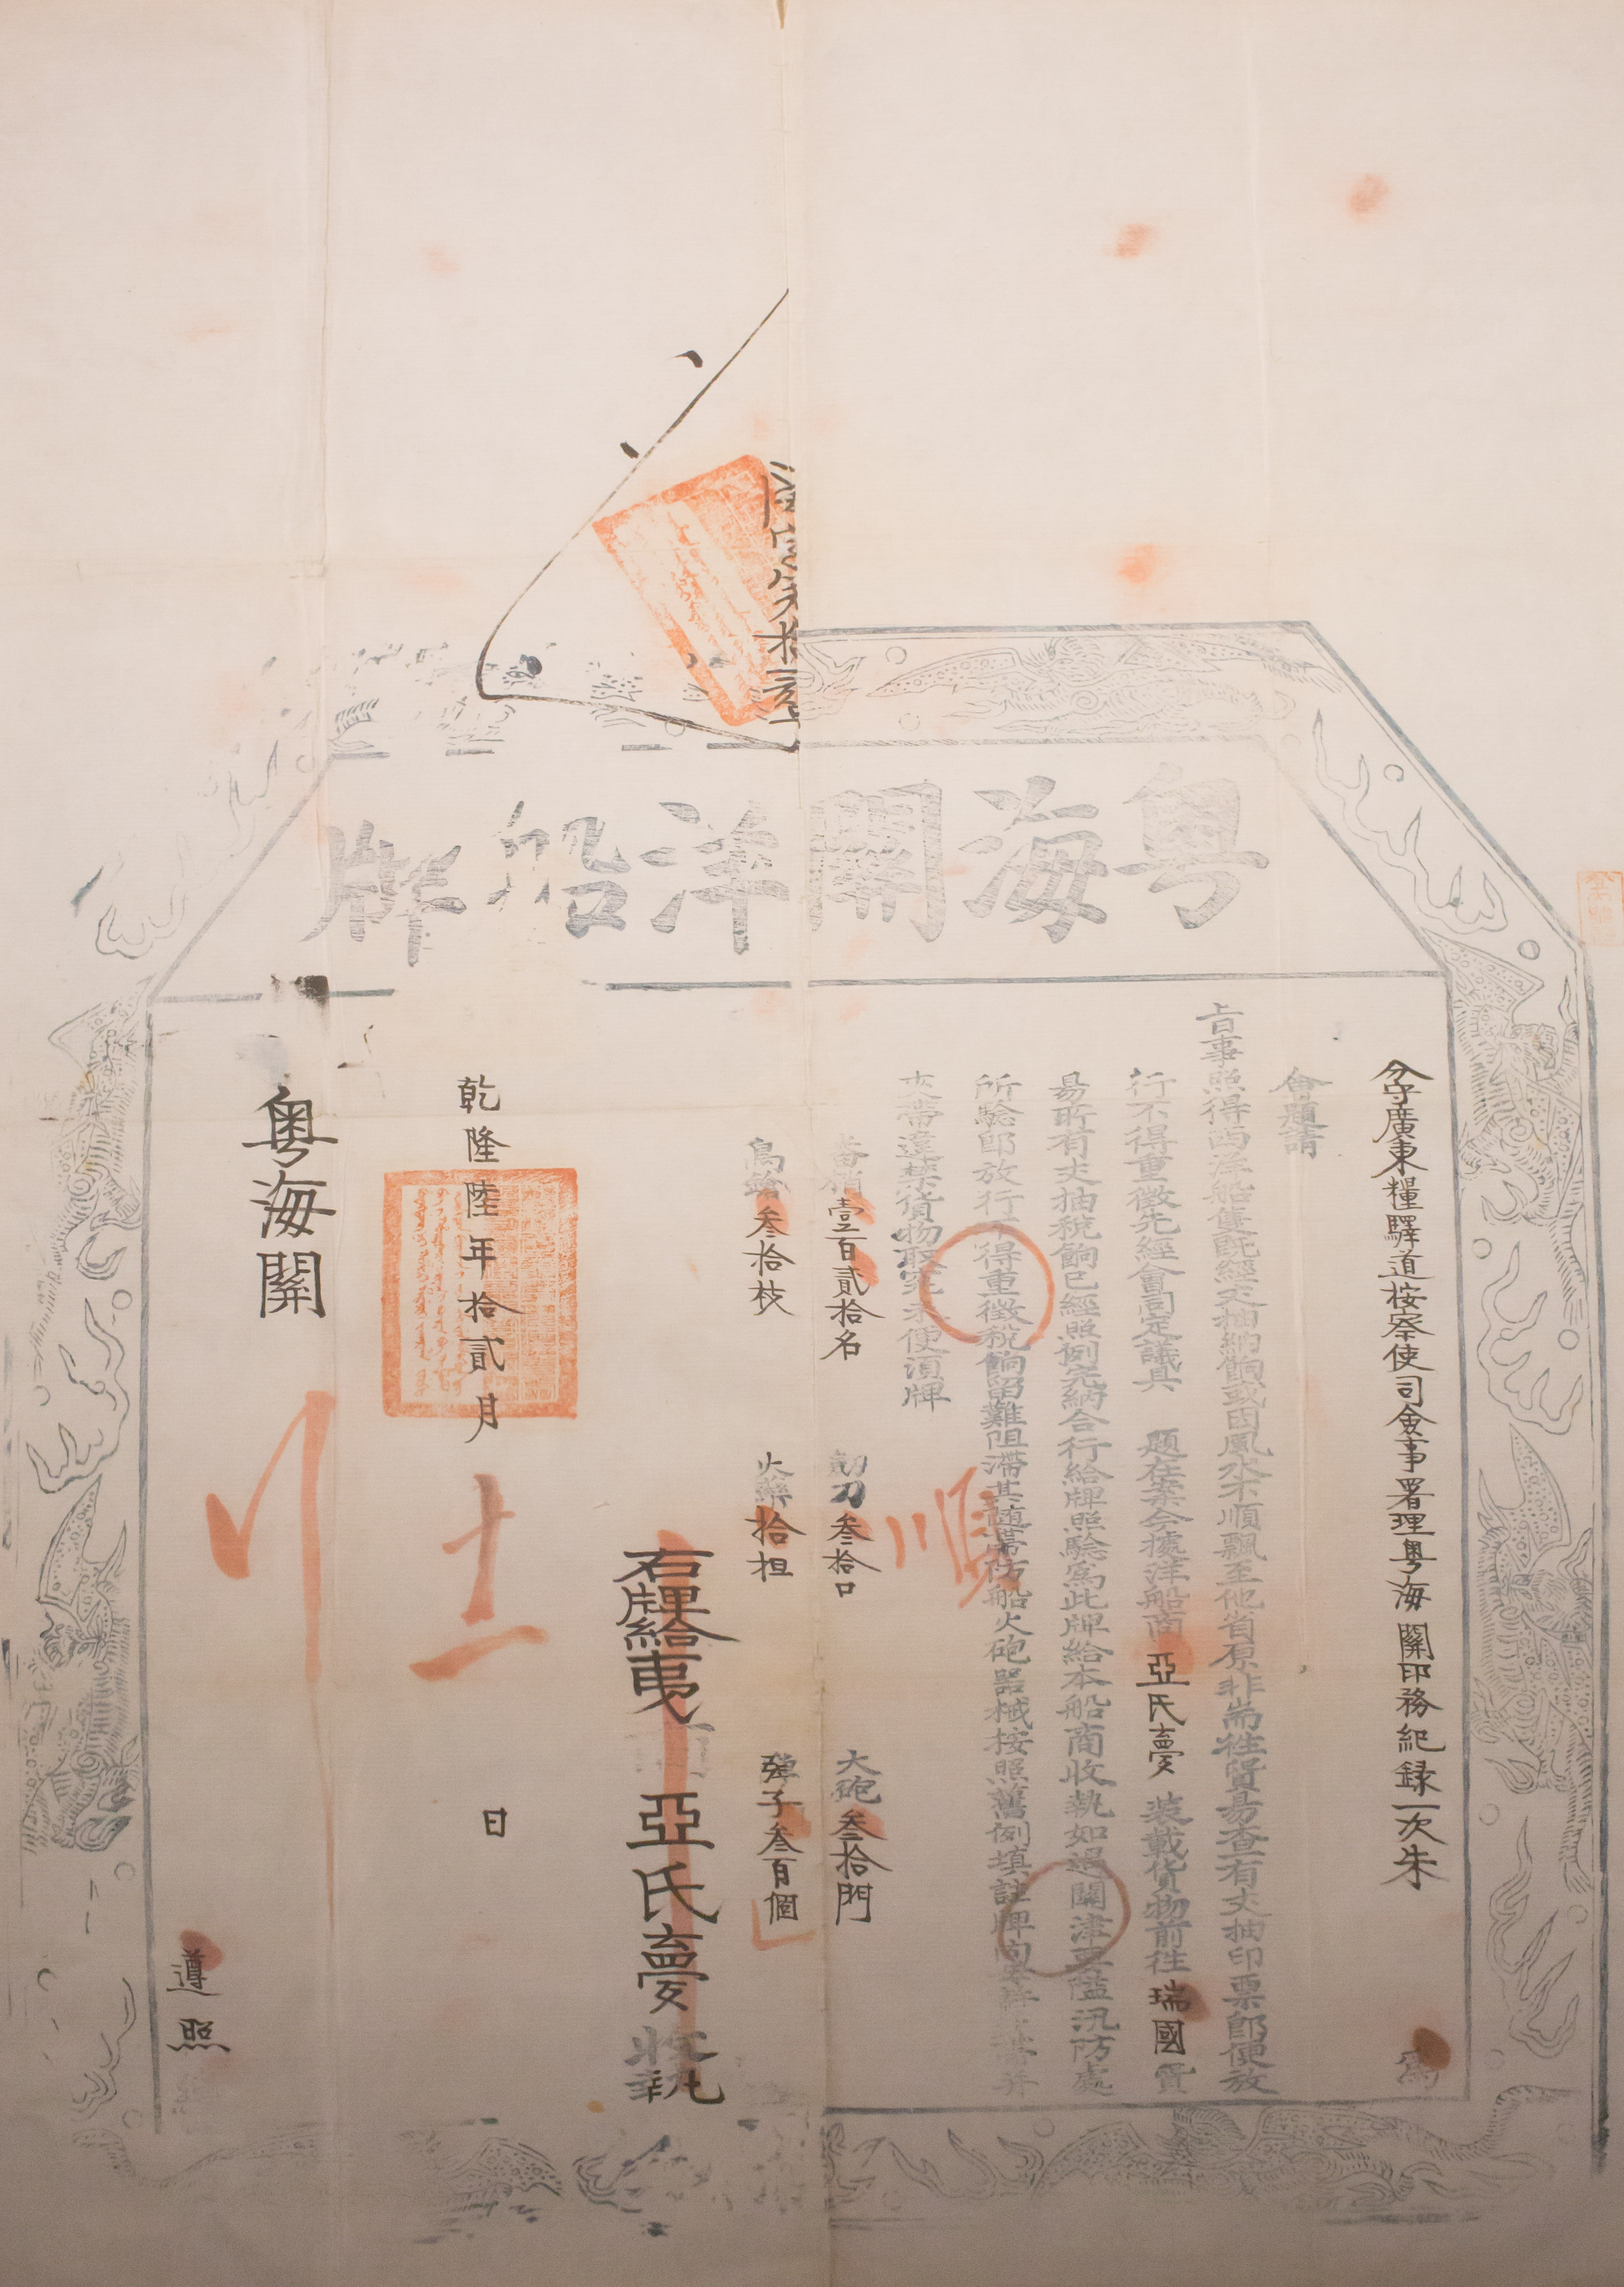 粵海關洋船牌
分守廣東糧驛道按察使司僉事署理粵海關印務紀録一次朱 為
會題請
旨事照得西洋船隻既經丈抽納餉或因風水不順飄至他省原非常徃貿易查有丈抽印票即便放
行不得重徵先經會同定議具 題在案今據洋船商 亞氏夣 裝載貨物前往 瑞國 貿
易所有丈抽稅餉已經照例完納合行給牌照驗為此牌給本船商收執如遇關津要隘汛防處
所驗即放行不得重徵稅餉留難阻滯其隨帶防船火砲器械按照舊例填註牌內
夾帶違禁貨物取究未便須牌
番梢 壹百貳拾名 劎刀 叁拾口 大砲 叁拾門
鳥鎗 叁拾枝 火藥 拾担 彈子 叁百個
右牌給夷商 亞氏夣 收執
順
乾隆陸年拾貳月 日
粵海關
遵照